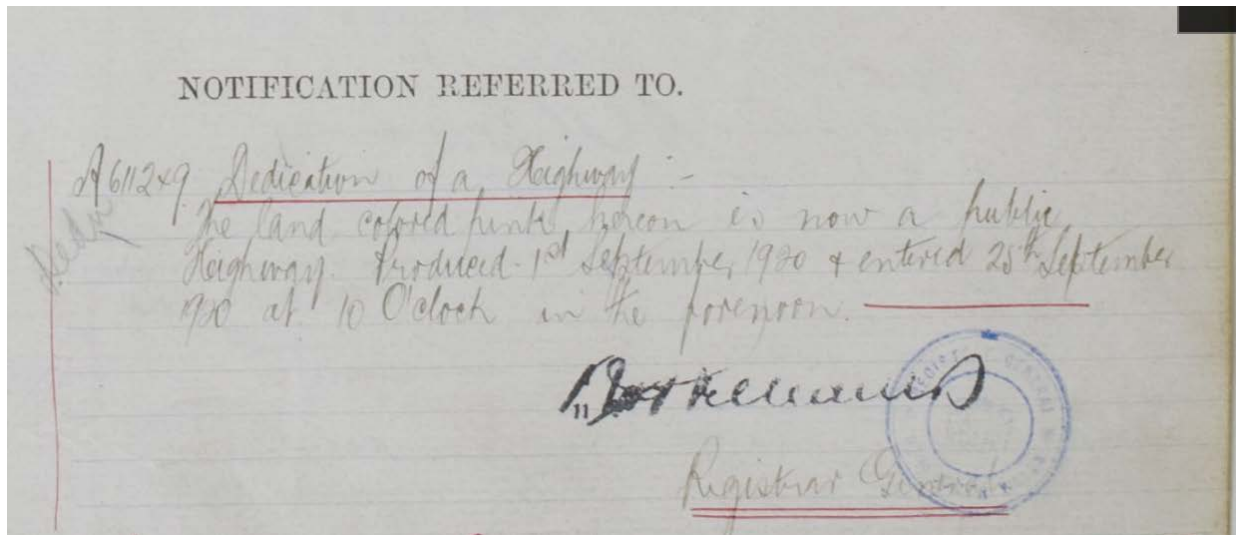 NOTIFICATION REFERRED TO.
A611249. Dedication of a Highway :-
The land colored pink hereon is now a public
Highway. Produced 1st September 1920 & entered 25th September
1920 at 10 O'clock in the forenoon.
Registrar General